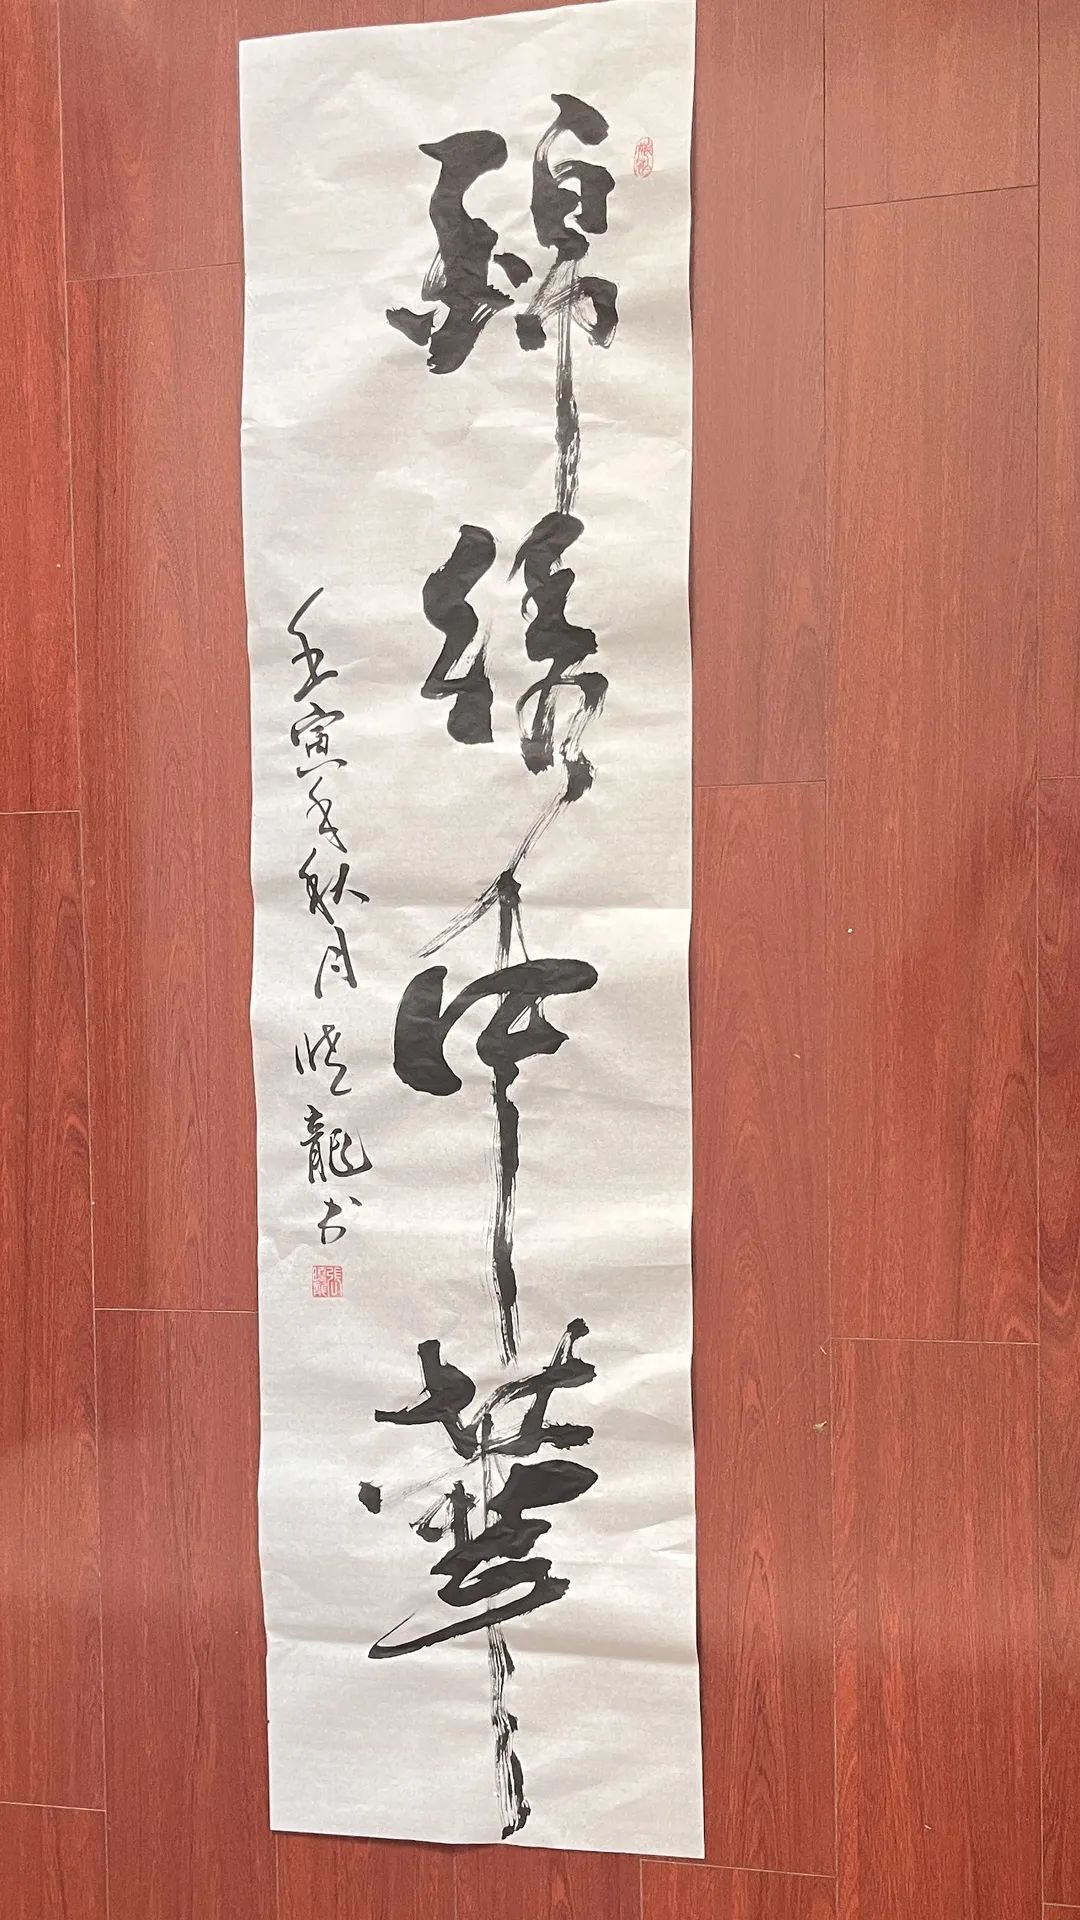 錦繡中華
壬寅年秋月曉龍书